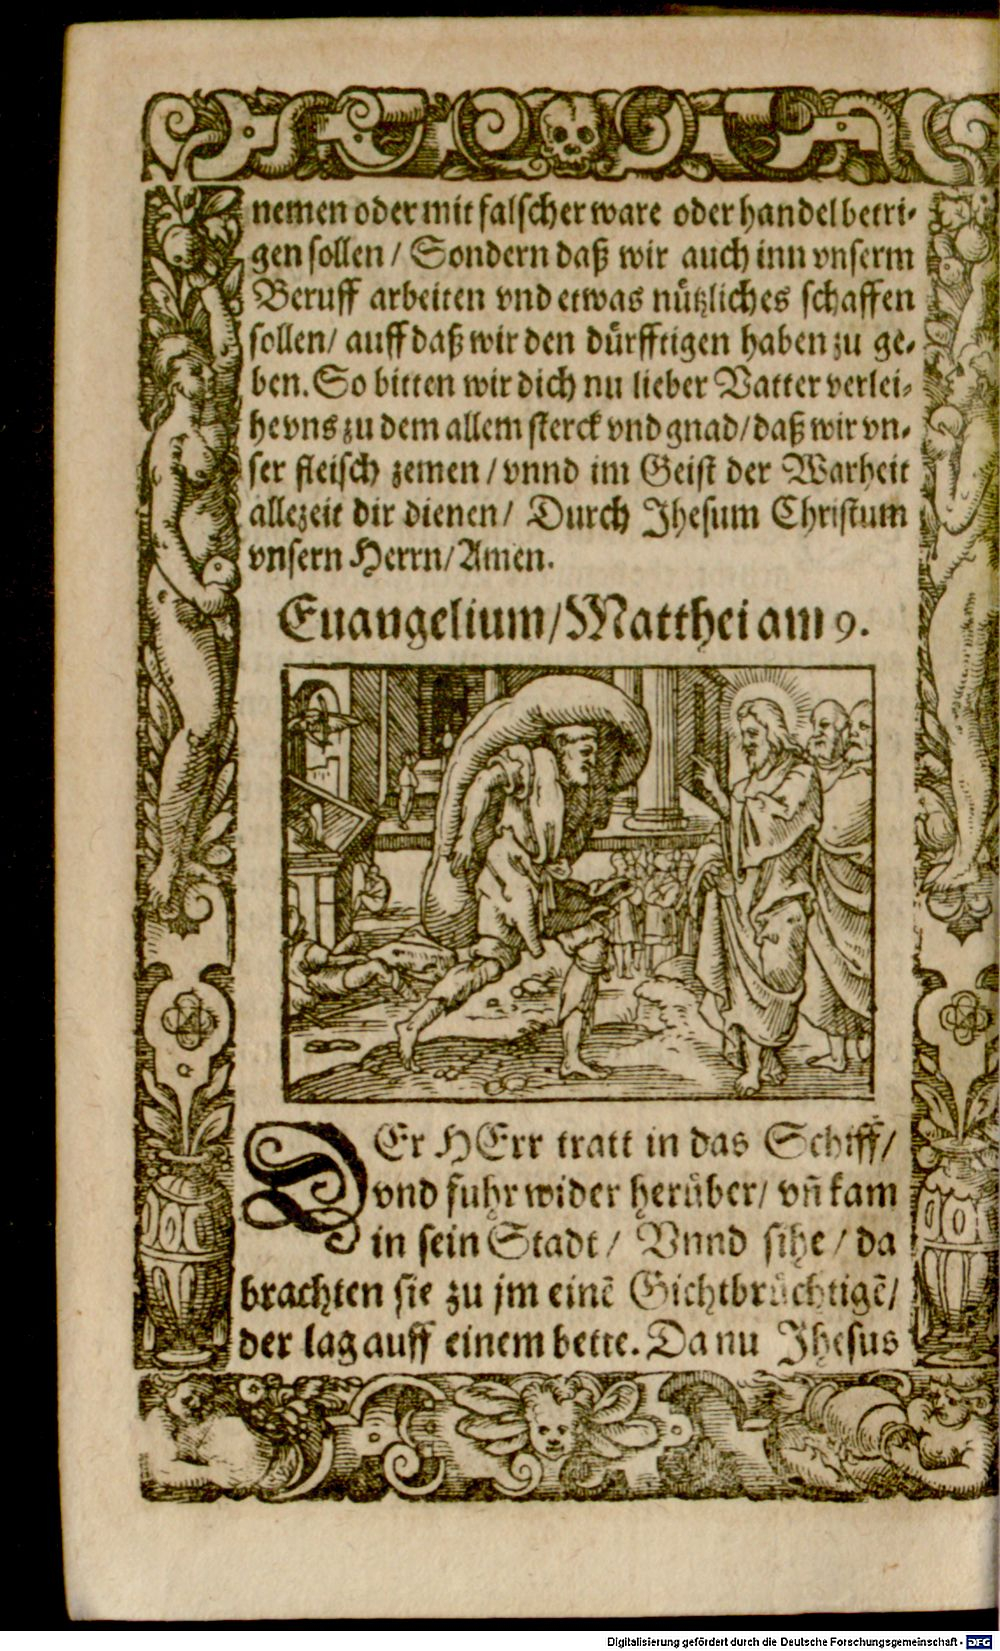 nemen oder mit falscher ware oder handel betri-
gen sollen / Sondern daß wir auch inn vnserm
Beruff arbeiten vnd etwas nützliches schaffen
sollen / auff daß wir den dürfftigen haben zu ge-
ben. So bitten wir dich nu lieber Vatter verlei-
he vns zu dem allem sterck vnd gnad / daß wir vn-
ser fleisch zemen / vnnd im Geist der Warheit
allezeit dir dienen / Durch Jhesum Christum
vnsern Herrn / Amen.
Euangelium / Matthei am 9.
DEr HErr tratt in das Schiff /
vnd fuhr wider herüber / vñ kam
in sein Stadt / Vnnd sihe / da
brachten sie zu jm einẽ Gichtbrüchtigẽ /
der lag auff einem bette. Da nu Jhesus
Digitalisierung gefördert durch die Deutsche Forschungsgemeinschaft - DFG